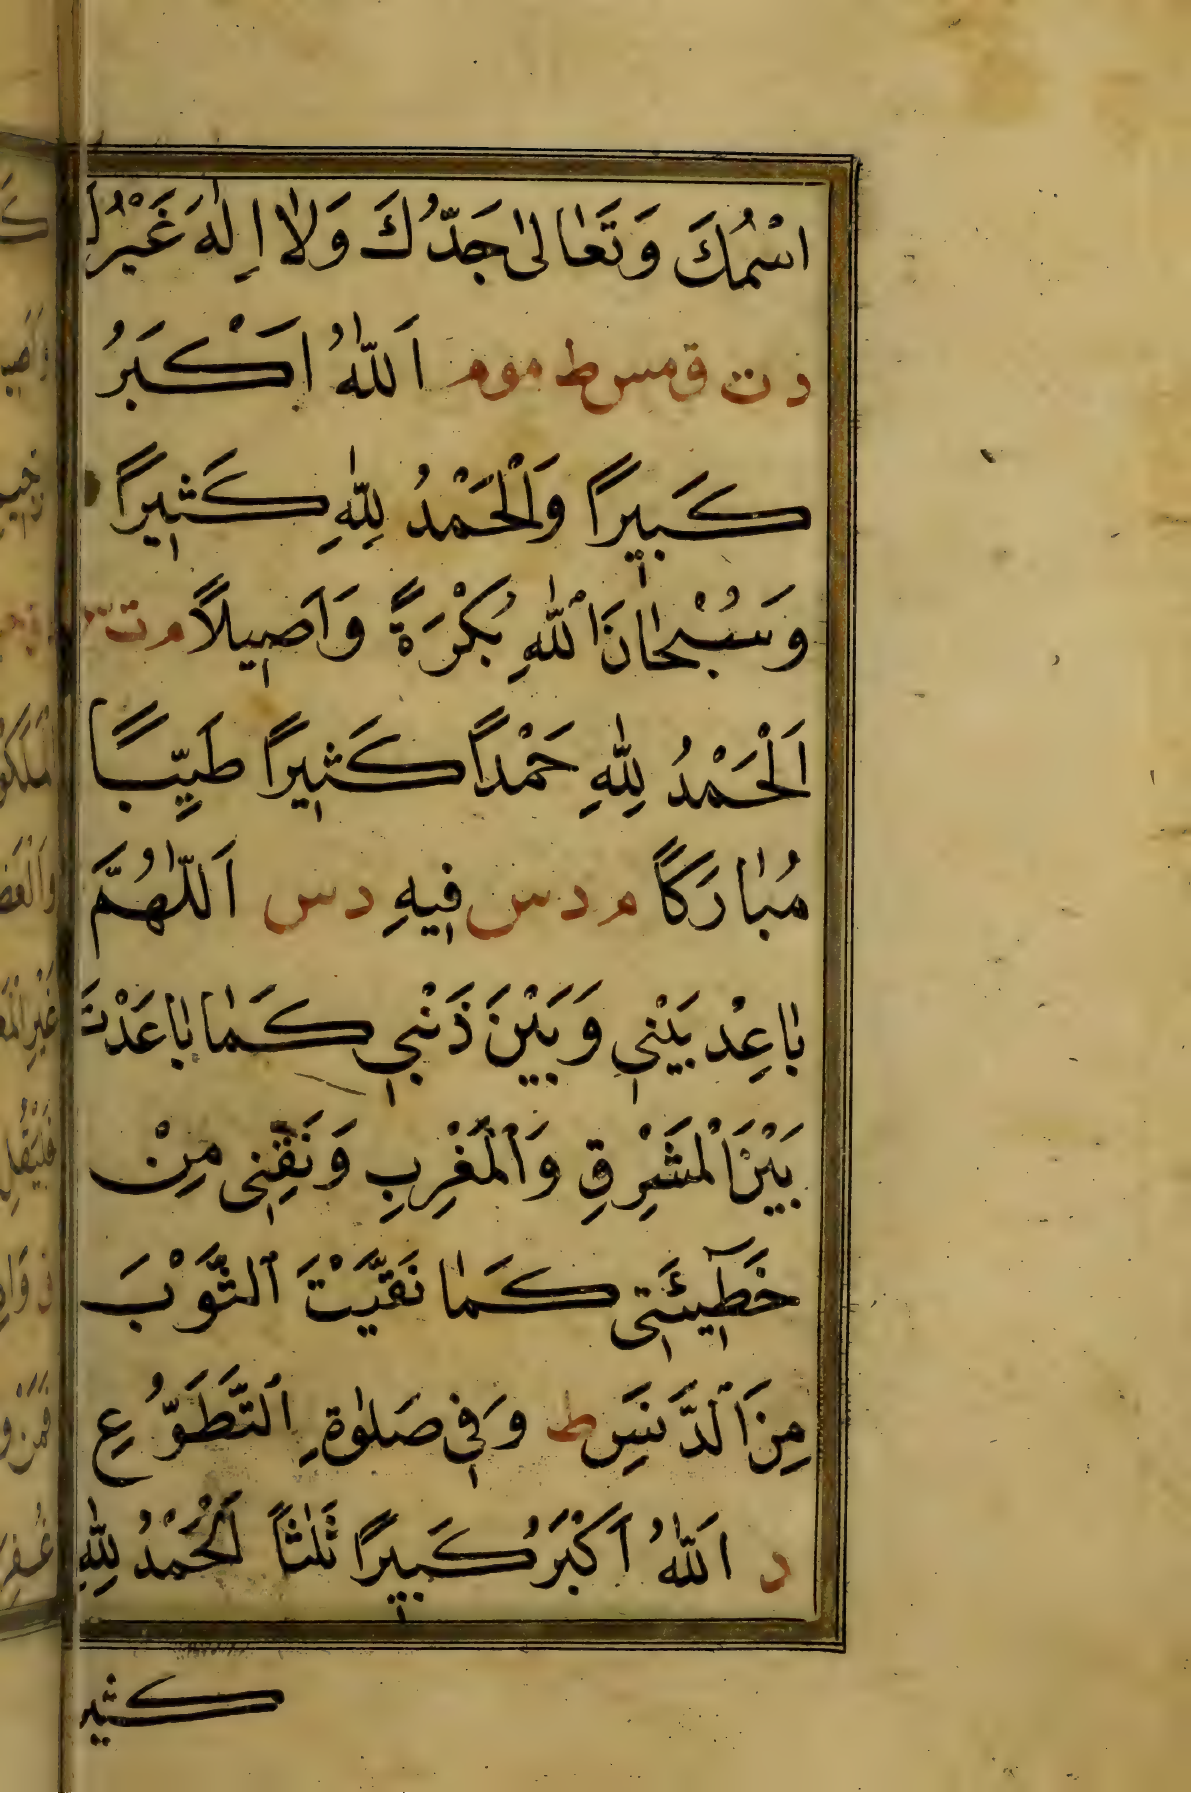 اسْمُكَ وَتَعَالىٰ جَدُّكَ وَلاٰ اِلٰهَ غَيْرُكَ
د ت ق مس ط مو م اَللّٰهُ اَكْبَرُ
كَبيِرًا وَالْحَمْدُ لِلّٰهِ كَثيِرًا
وَسُبْحٰانَ اللّٰهِ بُكْرَةً وَاَصيِلاً م ت س
اَلْحَمْدُ لِلّٰهِ حَمْدًا كَثيِرًا طَيِّبًا
مُبٰارَكًا م د س فيِهِ د س اَللّٰهُمَّ
بٰاعِدْ بَيْنيِ وَبَيْنَ ذَنْبيِ كَمٰا بٰاعَدْتَ
بَيْنَ الْمَشْرِقِ وَالْمَغْرِبِ وَنَقِّنيِ مِنْ
خَطٓيِئَتيِ كَمٰا نَقَّيْتَ الثَّوْبَ
مِنَ الدَّنَسِ ط وَفيِ صَلوٰةِ التَّطَوُّعِ
د اَللّٰهُ اَكْبَرُ كَبيِرًا ثَلٰثًا اَلْحَمْدُ لِلّٰهِ
كثير